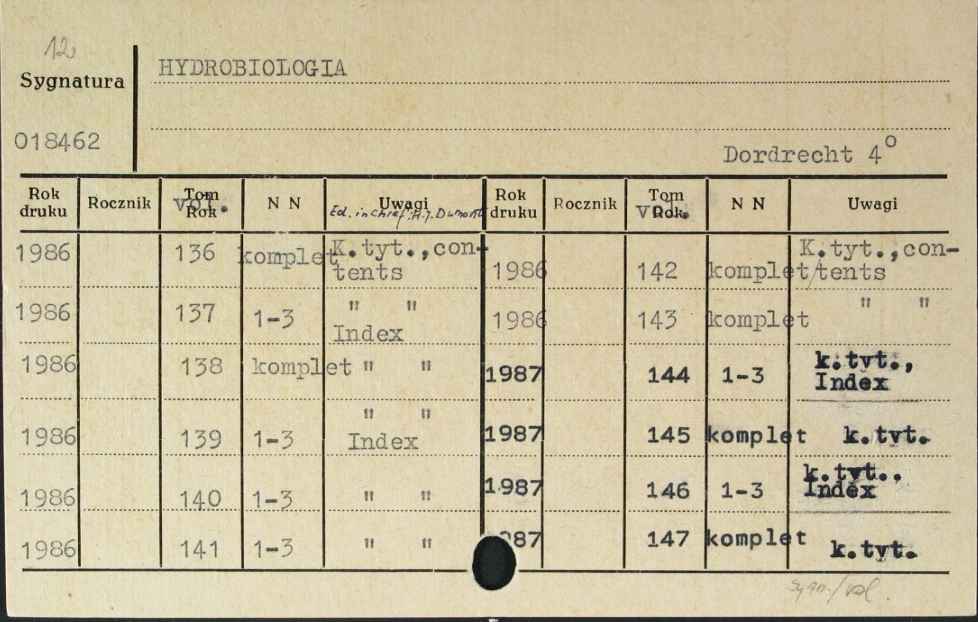 12
Sygnatura
HYDROBIOLOGIA
018462
Dordrecht 4°
Rok druku Rocznik Tom Rok vol. N N Uwagi Rok druku Rocznik Tom Rok vol. N N Uwagi
Ed. in chief: H.J. Dumont
1986 136 komplet K.tyt.,con-
tents
1986 137 1-3 " "
Index
1986 138 komplet " "
1986 139 1-3 " "
Index
1986 140 1-3 " "
1986 141 1-3 " "
1986 142 komplet K.tyt.,con-
/tents
1986 143 komplet " "
1987 144 1-3 k.tyt.,
Index
1987 145 komplet k.tyt.
1987 146 1-3 k.tyt.,
Index
987 147 komplet k.tyt.